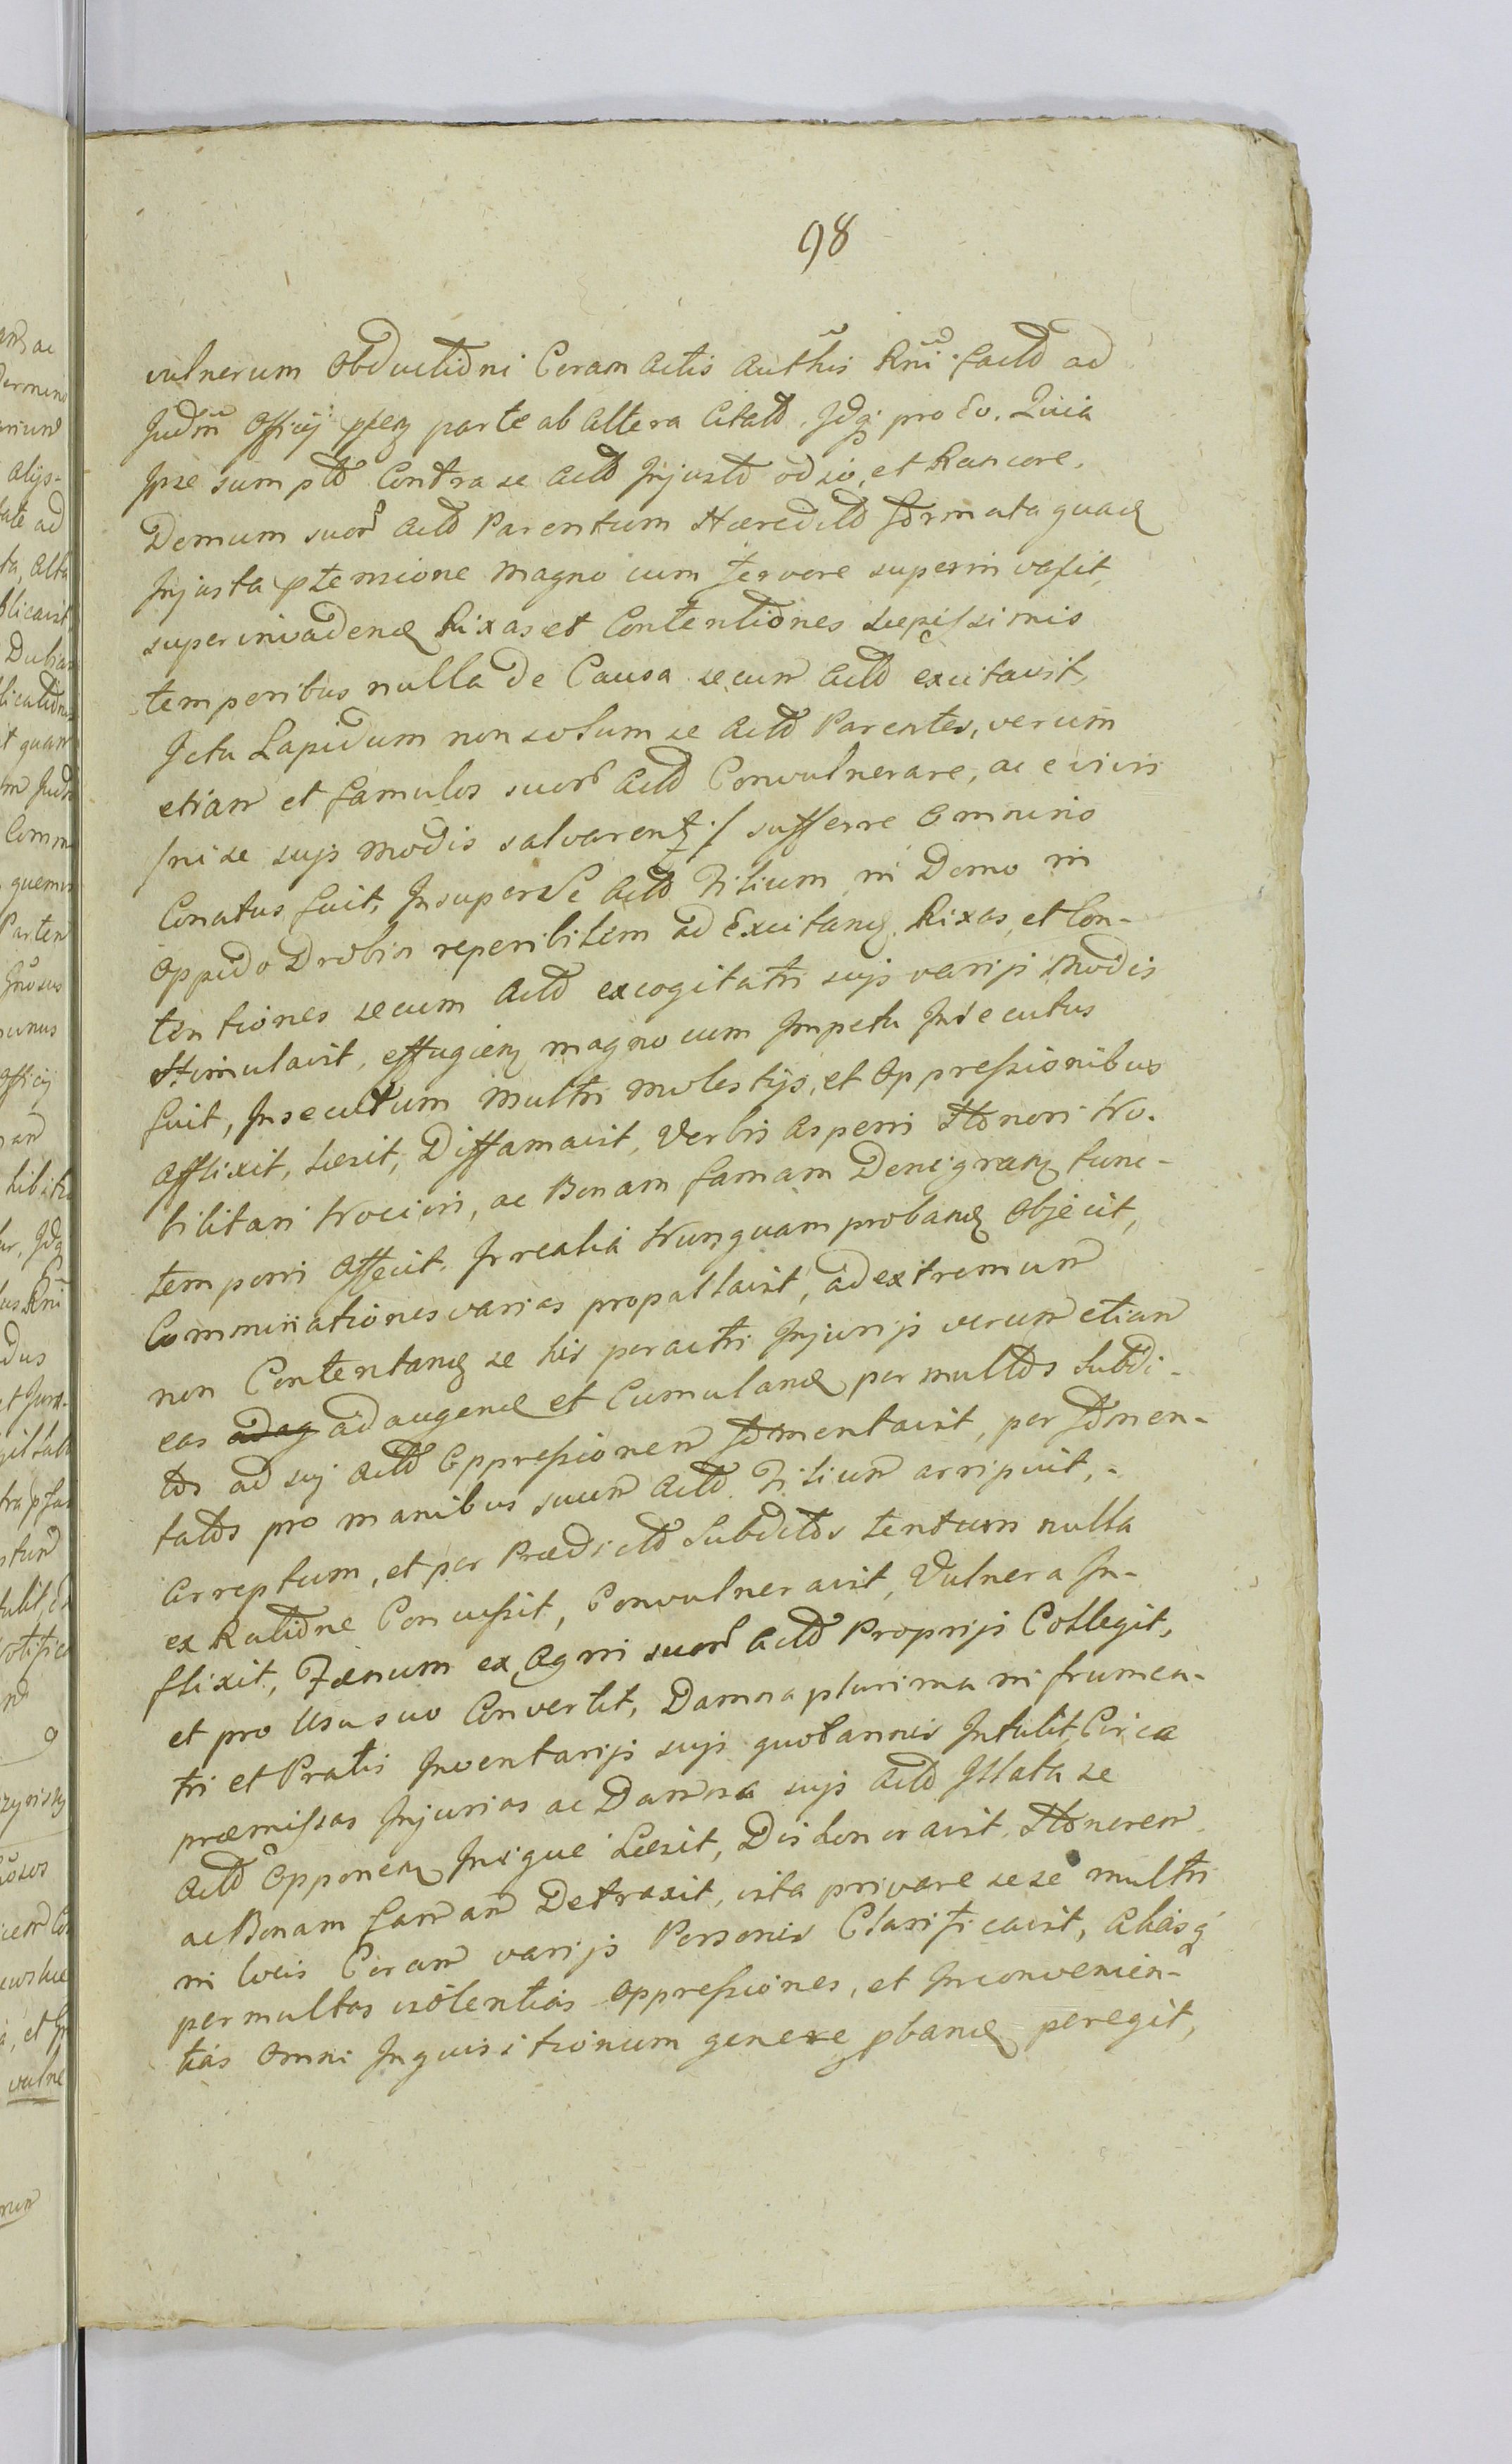 98
vulnerum obductioni Coram actis authis Rni facto ad
Judm officij pñtem parte ab altera citato. Idq; pro eo. Quia
Ipse sumpto Contra se acto Injusto odio, et Rancore,
Domum suorũ acto Parentum Haeredito formata quadã
Injusta ptensione magno cum fervore superinvasit,
superinvadendẽ Rixas et Contentiones saepissimis
temporibus nulla de Causa secum acto excitavit,
Ictu Lapidum non solum se acto Parentes, verum
etiam et famulos suorũ acto Convulnerare, ac e vivis
/ni se suis modis salvarent:/ sufferre omnino
Conatus fuit, Insuper Se acto Filium in Domo in
oppido Drobin reperibilem ad Excitand. Rixas, et Con-
tentiones secum acto excogitatis suis varijs modis
stimulavit, effugiem magno cum Impetu Insecutus
fuit, Insecutum multis molestijs, et oppressionibus
afflixit, laesit, Diffamavit, Verbis asperis Honori No-
bilitari Nocivis, ac Bonam famam Denigran. tunc-
temporis affecit. Irrealia Nunquam proband. objecit,
Comminationes varias propallavit, ad extremum
non Contentand. se his peractis Injurijs verum etiam
eas adag adaugend. et Cumuland. per multos Subdi-
tos ad sui acto oppressionem fomentavit, per fomen-
tatos pro manibus suum acto Filium arripuit, -
arreptum, et per Praedicto Subditos tentum nulla
ex Ratione Concussit, Convulneravit, Vulnera In-
flixit, Faenum ex Agris suorũ acto Proprijs Collegit,
et pro Usu suo Convertit, Damna plurima in frumen-
tis et Pratis Inventarijs suis quotannis Intulit, Circa
praemissas Injurias ac Damna suis acto Illata se
acto opponen. Inique Laesit, Dishonoravit, Honorem
ac Bonam famam Detraxit, vita privare sese multis
in locis Coram varijs Personis Clarificavit, aliasq
permultas violentias oppressiones, et Inconvenien-
tias omni Inquisitionum genere pband. peregit,